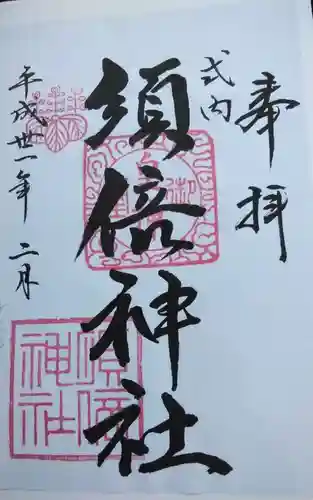 奉拝
式内
須倍神社
平成丗一年二月
須倍神社